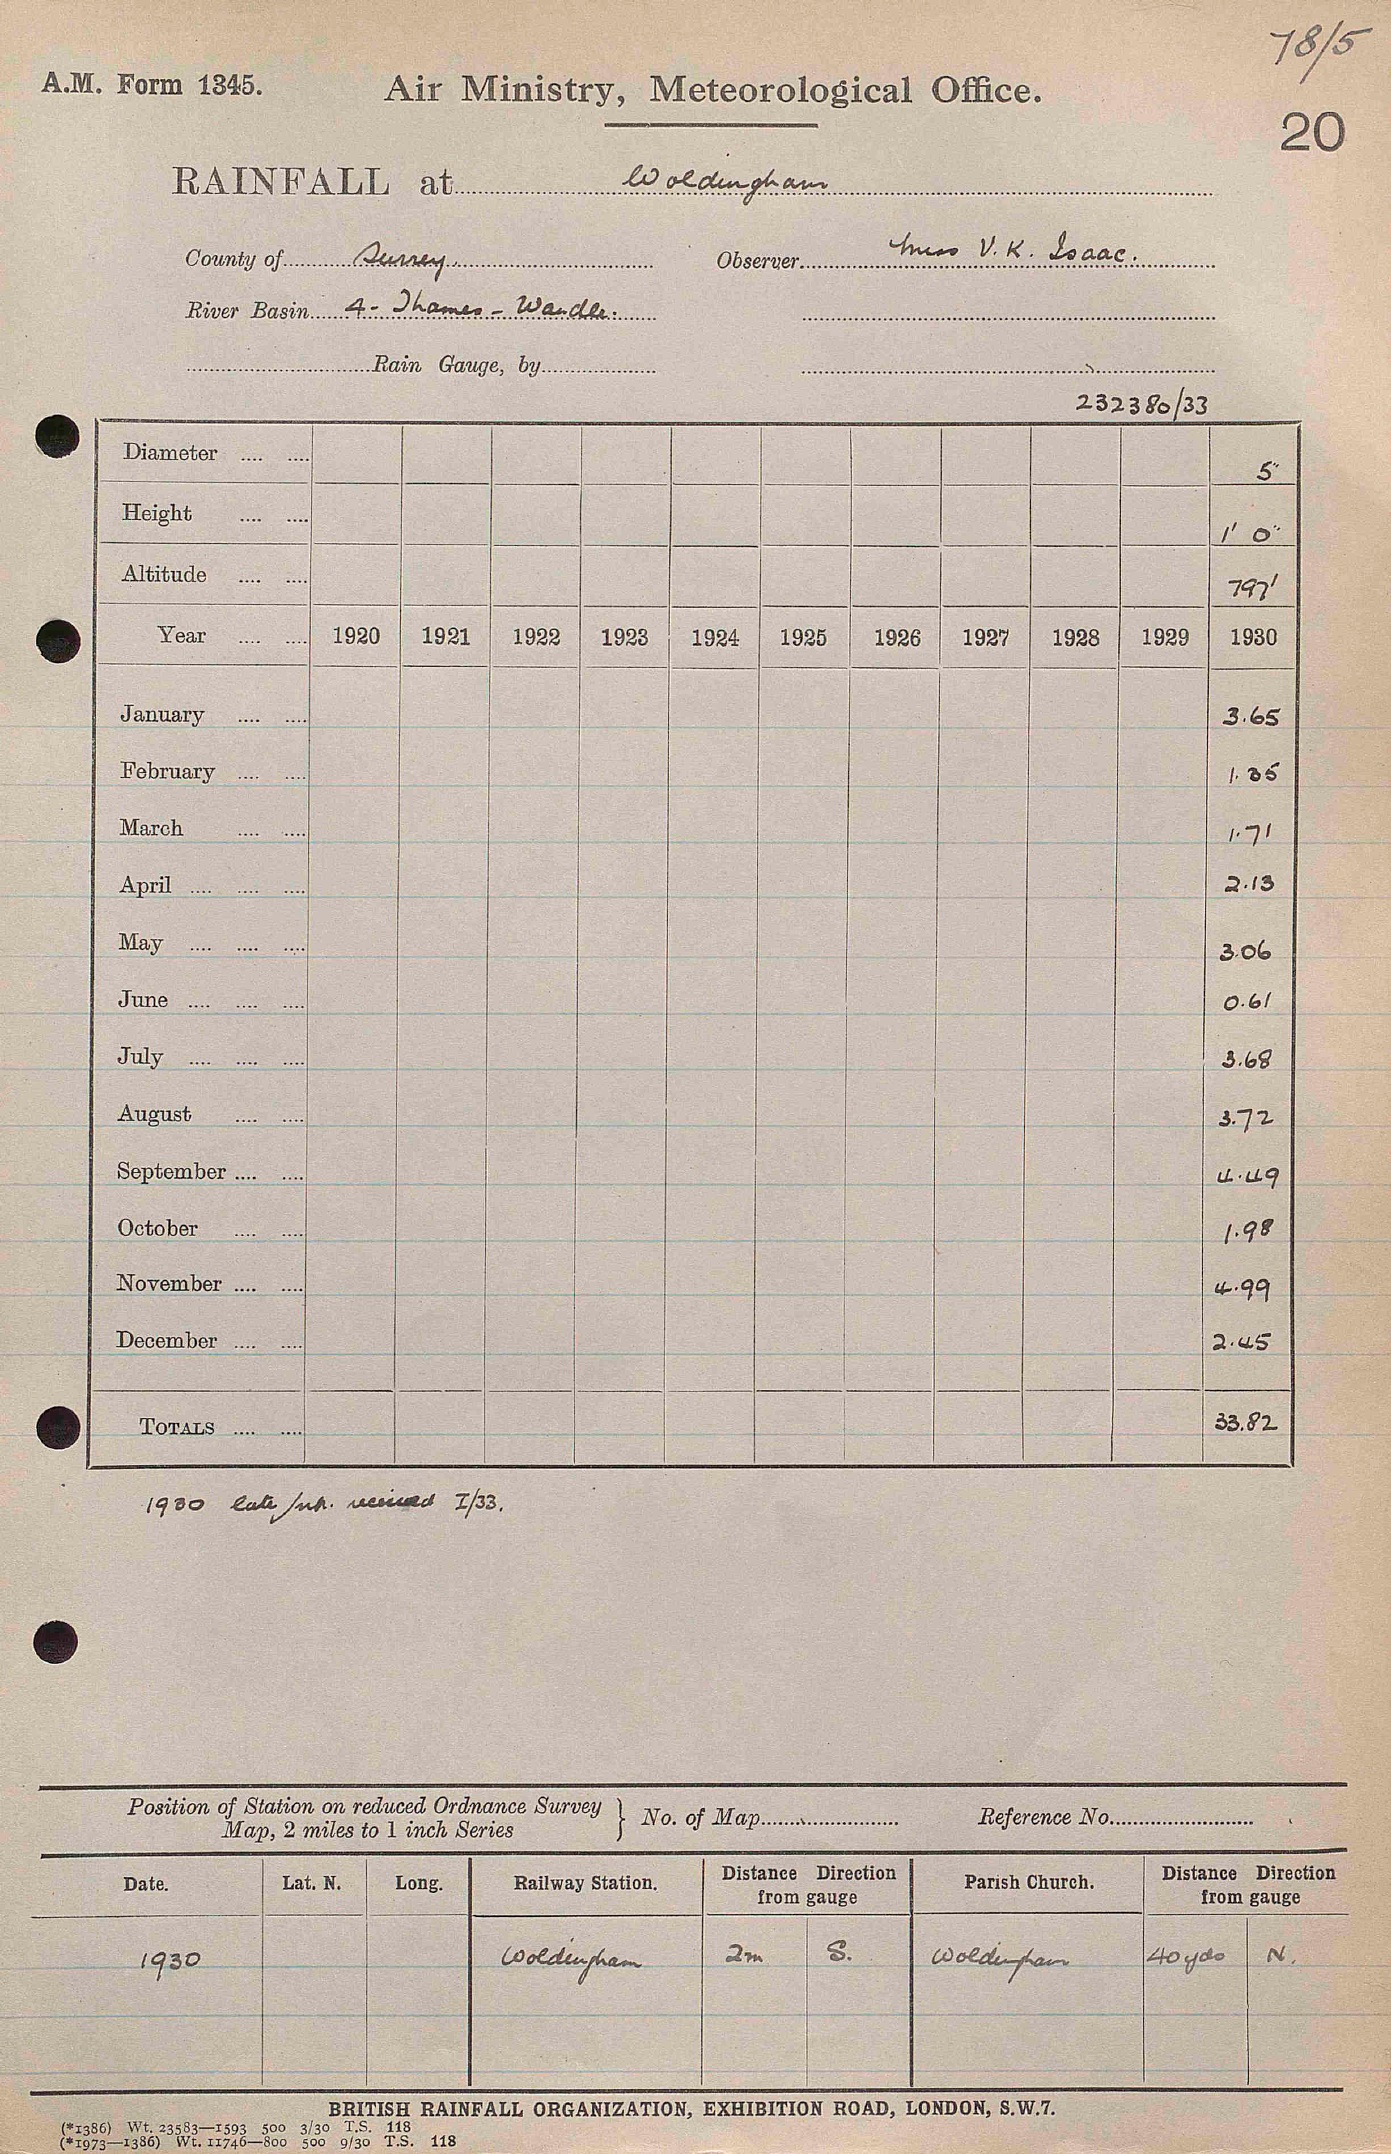 78/5
A.M. Form 1345. Air Ministry, Meteorological Office.
20
RAINFALL at Woldingham
County of Surrey. Observer Miss V. K. Isaac.
River Basin 4 - Thames - Wandle.
Rain Gauge, by
232380/33
Diameter .... .... 5"
Height .... .... 1' 0"
Altitude .... .... 797'
Year .... .... 1920 1921 1922 1923 1924 1925 1926 1927 1928 1929 1930
January .... .... 3.65
February .... .... 1.35
March .... .... 1.71
April .... .... .... 2.13
May .... .... .... 3.06
June .... .... .... 0.61
July .... .... .... 3.68
August .... .... 3.72
September .... .... 4.49
October .... .... 1.98
November .... .... 4.99
December .... .... 2.45
TOTALS .... .... 33.82
1930 late received I/33.
Position of Station on reduced Ordnance Survey } No. of Map Reference No.
Map, 2 miles to 1 inch Series
Date. Lat. N. Long. Railway Station. Distance Direction Parish Church. Distance Direction
from gauge from gauge
1930 Woldingham 2m S. Woldingham 40 yds N.
BRITISH RAINFALL ORGANIZATION, EXHIBITION ROAD, LONDON, S.W.7.
(*1386) Wt. 23583—1593 500 3/30 T.S. 118
(*1973—1386) Wt. 11746—800 500 9/30 T.S. 118